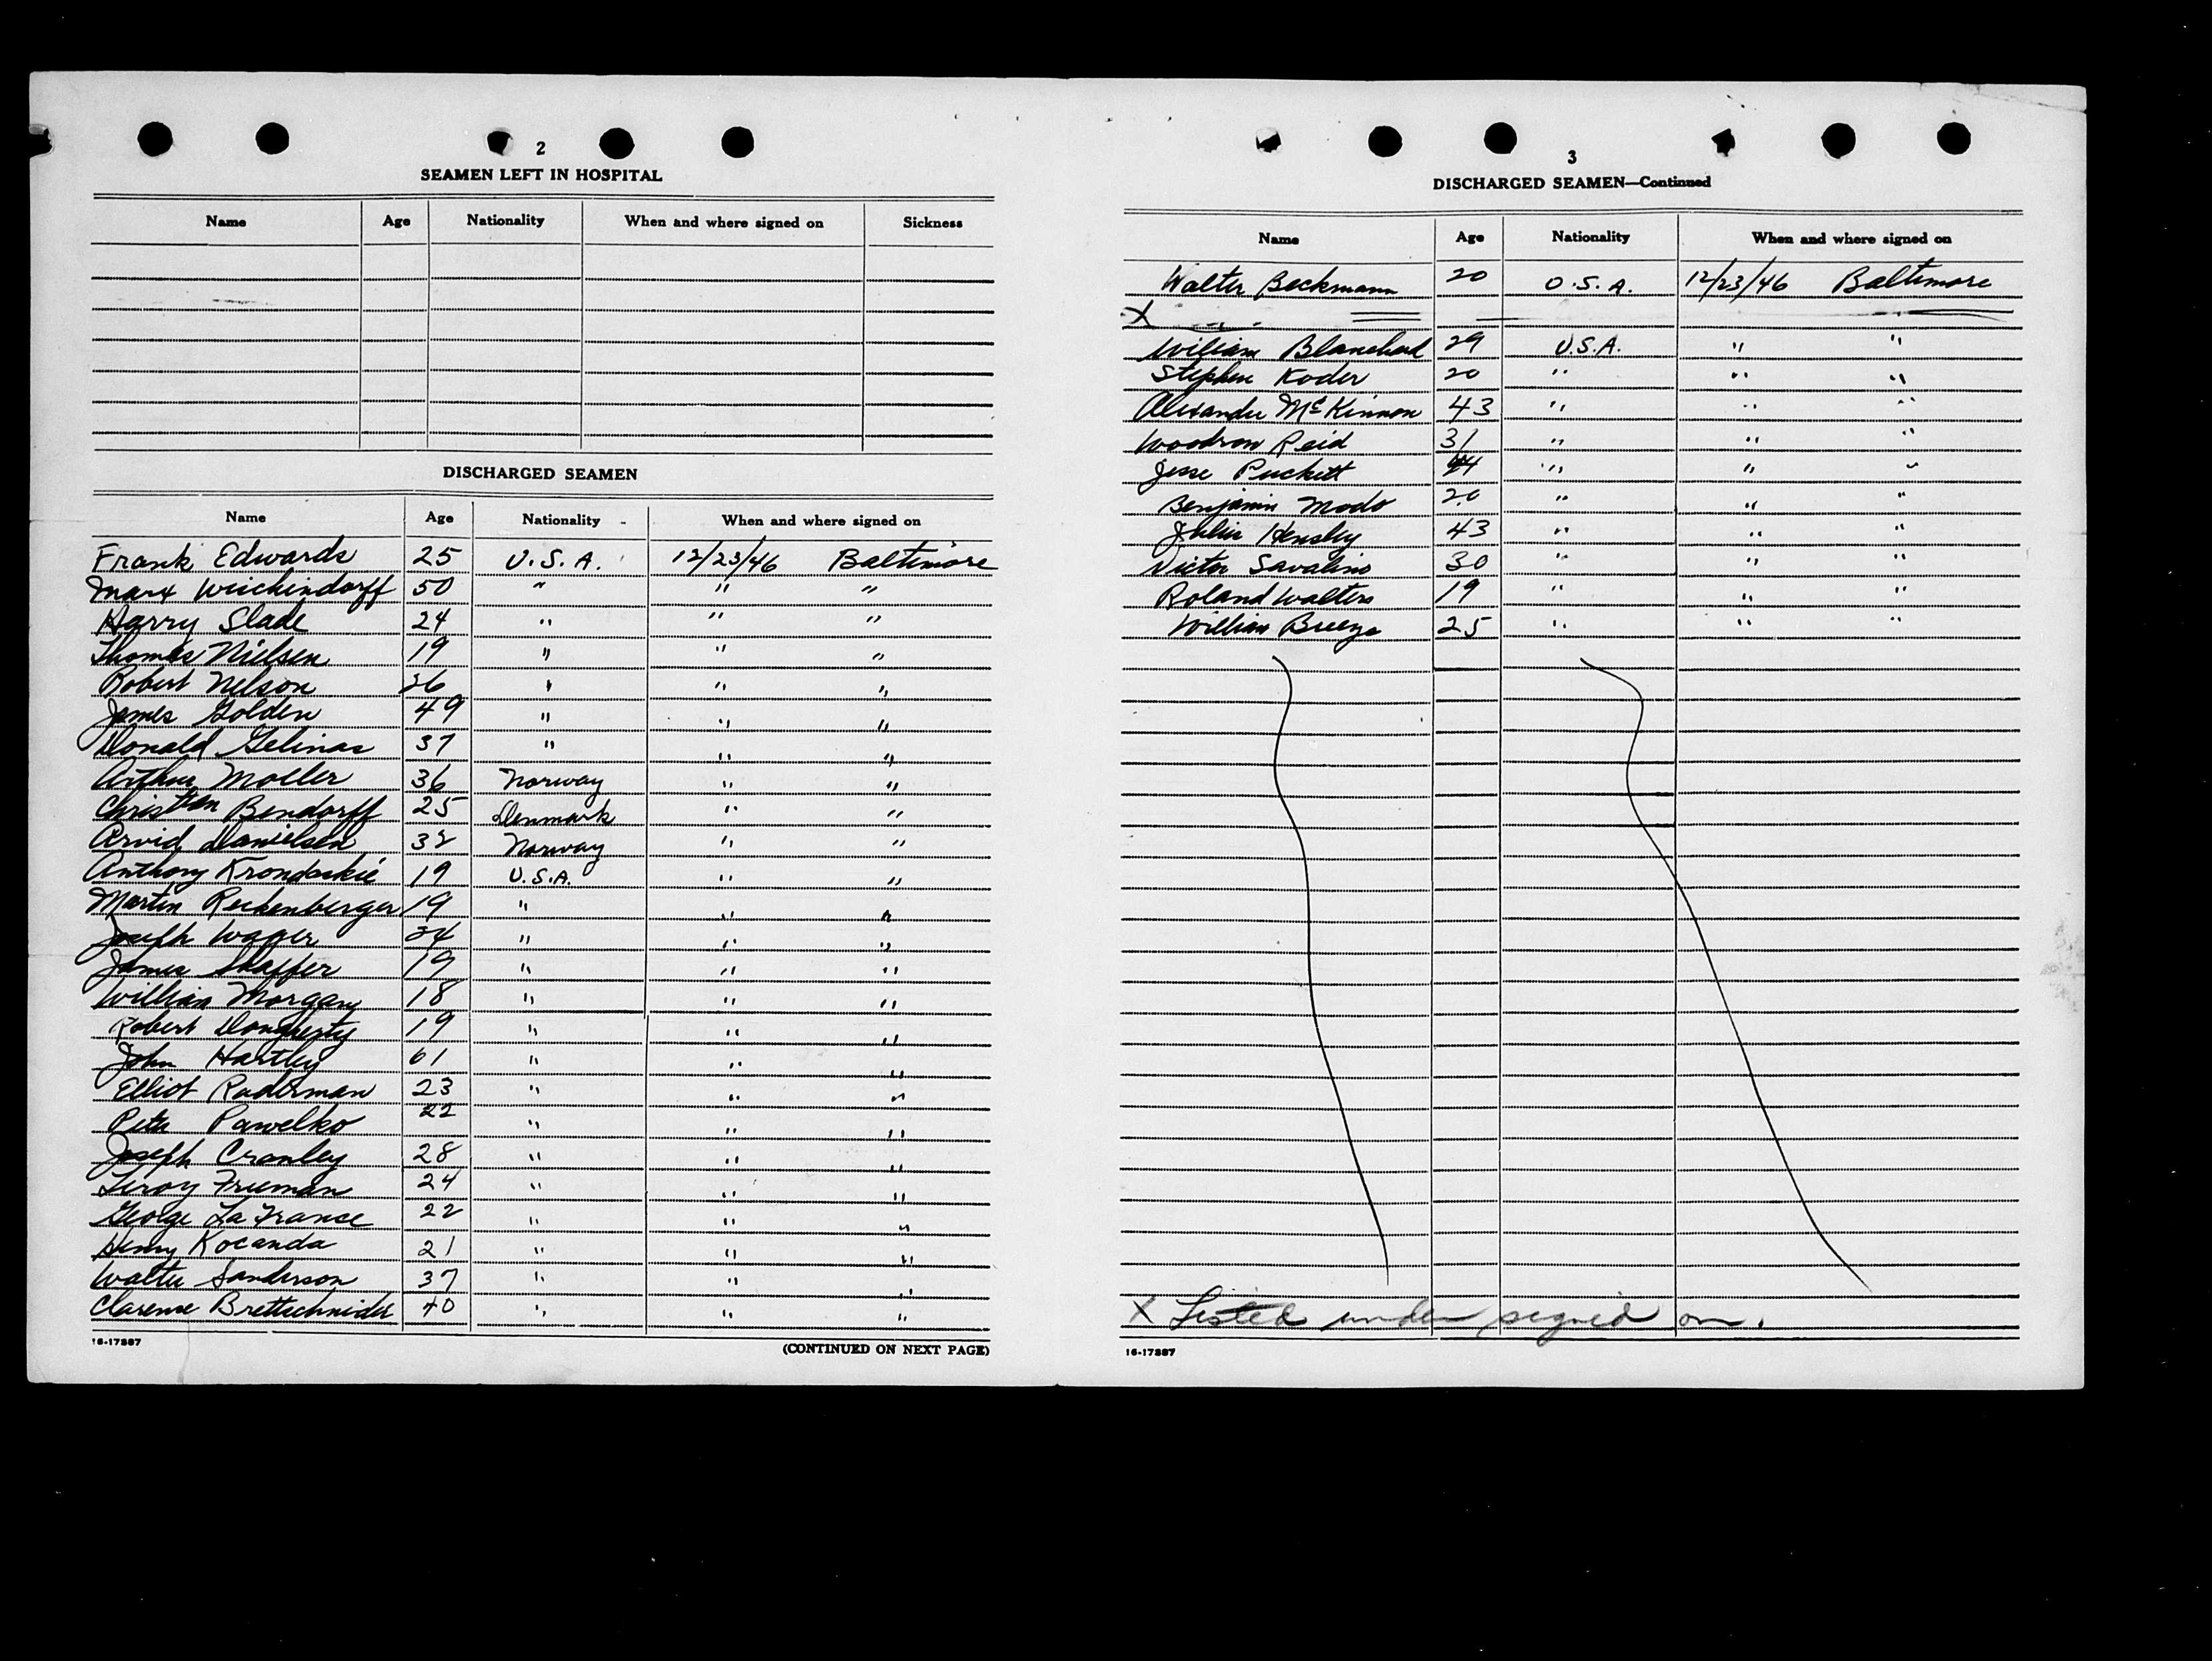 2
SEAMEN LEFT IN HOSPITAL
Name Age Nationality When and where signed on Sickness
DISCHARGED SEAMEN
Name Age Nationality When and where signed on
Frank Edwards 25 U.S.A. 12/23/46 Baltimore
Marx Weichindorff 50 " " "
Harry Slade 24 " " "
Thomas Nielsen 19 " " "
Robert Nelson 26 " " "
James Golden 49 " " "
Donald Gelinas 37 " " "
Arthur Moller 36 Norway " "
Christian Bendorff 25 Denmark " "
Arvid Danielsen 32 Norway " "
Anthony Krondaskie 19 U.S.A. " "
Martin Reckenberger 19 " " "
Joseph Wagger 34 " " "
James Shaffer 19 " " "
William Morgan 18 " " "
Robert Dougherty 19 " " "
John Hartley 61 " " "
Elliot Raderman 23 " " "
Peter Pawelko 22 " " "
Joseph Cranley 28 " " "
Leroy Freeman 24 " " "
George La France 22 " " "
Henry Kocanda 21 " " "
Walter Sanderson 37 " " "
Clarence Brettschnider 40 " " "
16-17887
(CONTINUED ON NEXT PAGE)
3
DISCHARGED SEAMEN—Continued
Name Age Nationality When and where signed on
Walter Beckmann 20 U.S.A. 12/23/46 Baltimore
X
William Blanchard 29 U.S.A. " "
Stephen Koder 20 " " "
Alexander McKinnon 43 " " "
Woodrow Reid 31 " " "
Jesse Puckett 44 " " "
Benjamin Modo 20 " " "
Julius Hensley 43 " " "
Victor Savalino 30 " " "
Roland Walters 19 " " "
William Breeze 25 " " "
X Listed under signed on.
16-17887